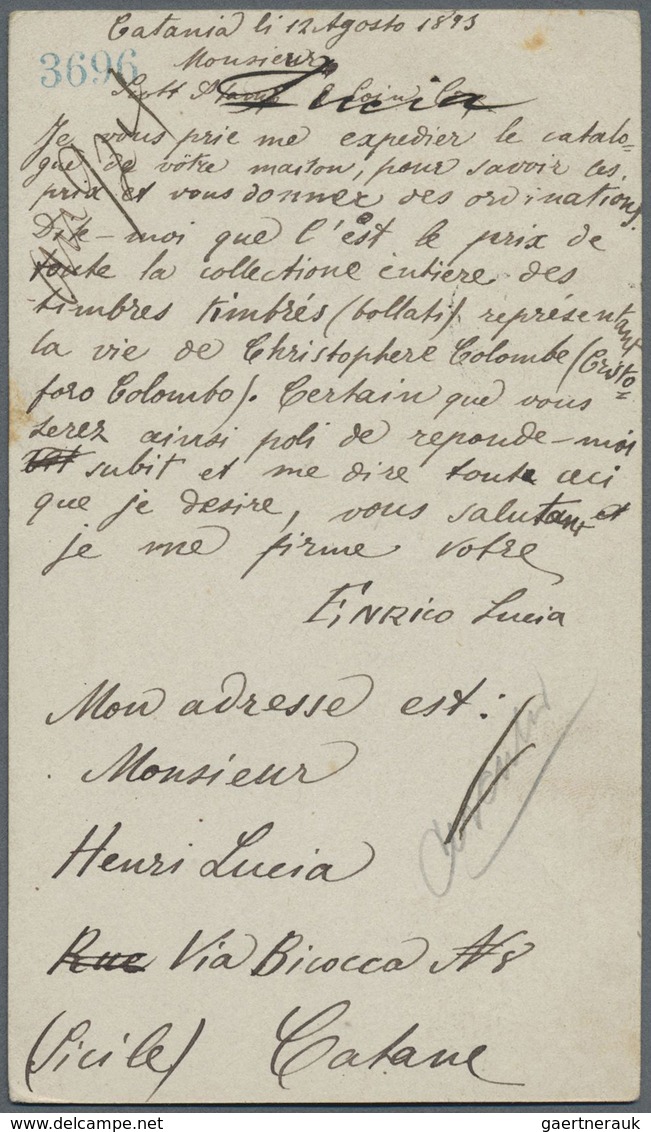 Catania li 12 Agosto 1893
3696
Monsieur
Scott Stamp & Coin Co
Lucia
Je vous prie me expedier le catalo=
gue de vôtre maison, pour savoir les
prix et vous donner des ordinations.
Dite-moi que l'est le prix de
toute la collectione entiere des
timbres timbrés (bollati) représentant
la vie de Christophere Colombe (Cristo=
foro Colombo). Certain que vous
serez ainsi poli de reponde-moi
subit et me dire toute ceci
que je desire, vous salutant et
je me firme votre
Enrico Lucia
Mon adresse est:
Monsieur
Henri Lucia
Rue Via Bicocca N8
(Sicile) Catane
gaertnerauk